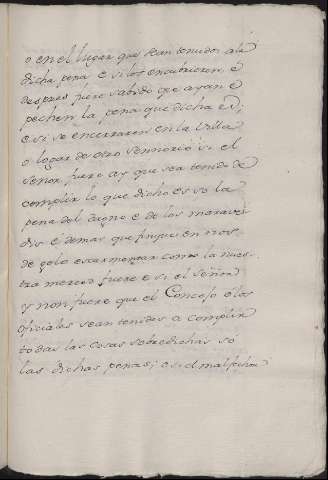 o en el lugar que sean tenudos a la
dicha pena e si los encubrieren, e
despues fuere sabido que ayan e
pechen la pena que dicha es;
e si se encerraren en la Villa
o logar de otro Sennorio si el
señor fuere ay que sea tenido de
complir lo que dicho es so la
pena del dagno e de los marave
dis e demas que finque en nos
de gelo escarmentar como la nues
tra merced fuere e si el Señor
y non fuere que el Concejo o los
oficiales sean tenidos a complir
todas las cosas sobredichas so
las dichas penas; e si el malfechor